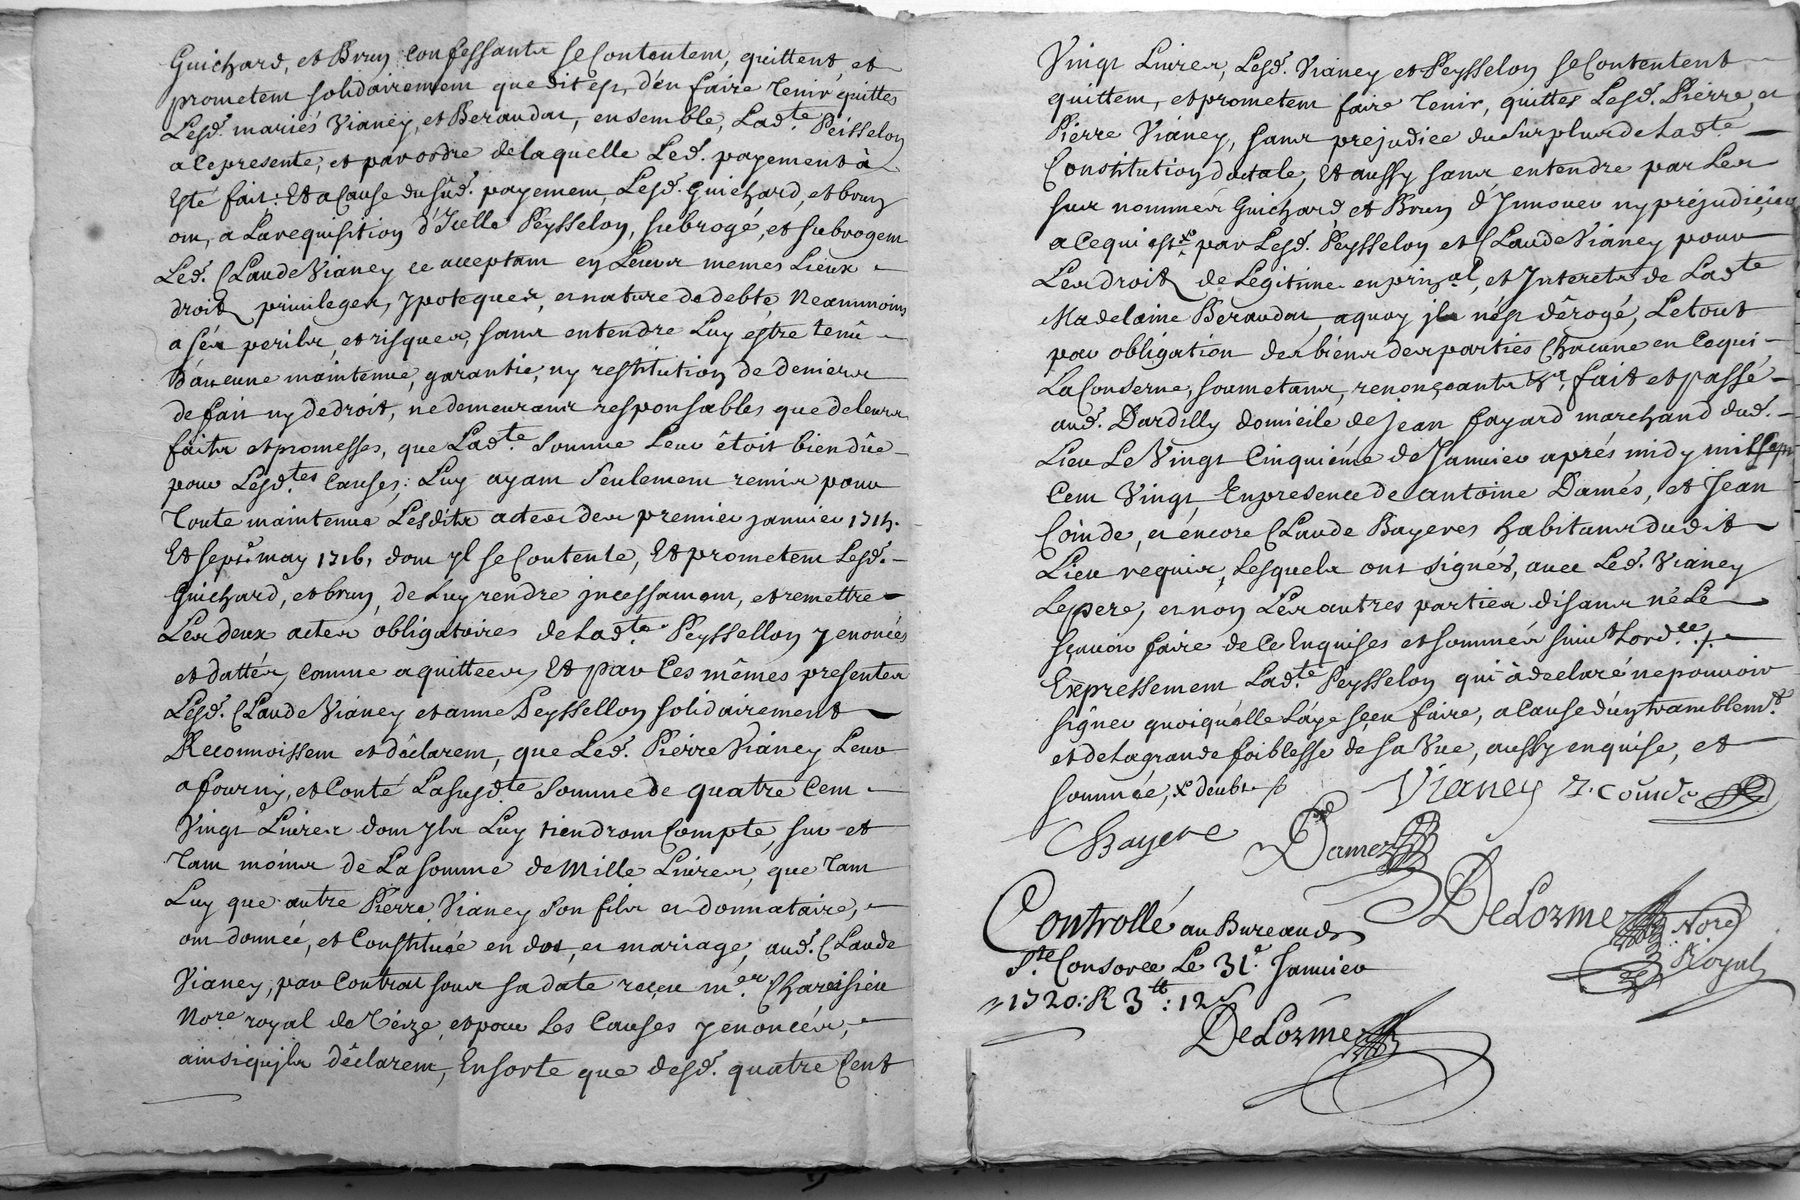 Guichard, et Brun confessants se Contentem, quittent et
prometem solidairement que dit est, d'en faire tenir quittes
Lesd. mariés Vianey, et Beraudat, ensemble, Ladte. Peisselon
a Ce presente, et par ordre de laquelle Led. payement à
Esté fait: Et a Cause du sud. payement, Lesd. Guichard, et brun
ont, a La requisition d'Icelle Peysselon, subrogé, et subrogem
Led. Claude Vianey ce acceptant en Leurs memes Lieux
droits privileges, ypoteques, et nature de debte, Neammoins
a ses perils, et risques, sans entendre Luy estre tenû
D'aucune maintenue, garantie, ny restitution de deniers
de fait ny de droit, ne demeurant responsables que de leurs
faits et promesses, que Ladte. somme Leur êtoit bien dûe
pour Lesdtes. Causes; Luy ayant seulement remis pour
toute maintenue Lesdits actes des premier janvier 1714.
Et sept. may 1716, dont yl se Contente, Et prometem Lesd.
Guichard, et brun, de Luy rendre jncessament, et remettre
Les deux actes obligatoires de Ladte. Peyssellon y enoncés
et dattés, comme aquittées, Et par Ces mêmes presentes
Lesd. Claude Vianey et anne Peyssellon solidairement
Reconnoissent et dêclarent, que Led. Pierre Vianey Leur
a fourny, et Conté La susdte. somme de quatre Cent
Vingt Livres dont yls Luy tiendront Compte, sur et
tant moins de La somme de Mille Livres, que tant
Luy que autre Pierre Vianey son fils et donnataire,
ont donnée, et Constituée en dot, et mariage, aud. Claude
Vianey, par Contrat sous sa date reçeu me. Charesieu
Nore. royal de Veize, et pour les Causes y enoncées,
ainsi qu'yls dêclarent, En sorte que desd. quatre Cent
Vingt Livres, Lesd. Vianey et Peysselon se Contentent
quittem, et prometem faire tenir, quittes Lesd. Pierre, et
Pierre Vianey, sans prejudice du surplus de Ladte.
Constitution dotale, Et aussy sans entendre par Les
sus nommés Guichard et Brun d'Innover ny préjudicier
a Ce qui est x par Lesd. Peysselon et Claude Vianey pour
Les droits de Legitime en prinal. et Interets de Ladte
Madelaine Beraudat, a quoy jl n'est dêrogé, Le tout
par obligation des biens des parties Chacune en Ce qui
La Conserne, soumetant, renonçeants &a. fait et passé
aud. Dardilly domicile de Jean fayard marchand dud.
Lieu Le Vingt Cinquiéme de Janvier aprés midy mil Sept
Cent Vingt, En presence de antoine Damés, et Jean
Coinde, et encore Claude Bayeres habitans dudit
Lieu requis, Lesquels ont signés, avec Led. Vianey
Le pere, et non Les autres parties disant ne Le
sçavoir faire de Ce Enquises et sommés suivt. Lordce.
Expressement Ladte. Peysselon qui à declaré ne pouvoir
signer quoiqu'elle L'aye sçeu faire, a Cause d'un tramblemt.
et de La grande foiblesse de sa Vue, aussy enquise, et
sommée, x deubt
Vianey J. coinde
CBayere Damez
DeLorme Nore Royal
Controllé au Bureau de
Ste. Consorce Le 31e. Janvier
1720: R 3tt: 12s
DeLorme